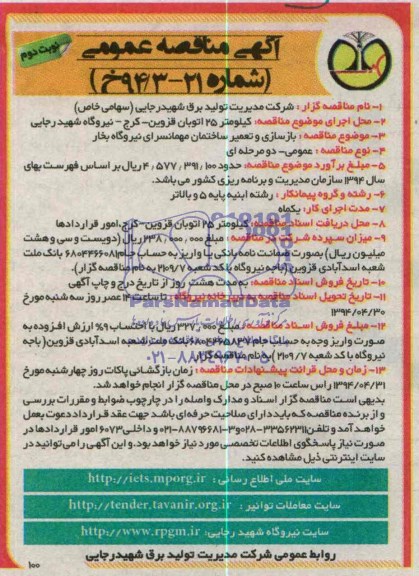 آگهی مناقصه عمومی
(شماره ۲۱-۹۴/۳خ)
نوبت دوم
۱- نام مناقصه گزار : شرکت مدیریت تولید برق شهیدرجایی (سهامی خاص)
۲- محل اجرای موضوع مناقصه: کیلومتر ۲۵ اتوبان قزوین- کرج - نیروگاه شهید رجایی
۳- موضوع مناقصه : بازسازی و تعمیر ساختمان مهمانسرای نیروگاه بخار
۴- نوع مناقصه : عمومی- دو مرحله ای
۵- مبلغ برآورد موضوع مناقصه: حدود ۴,۵۷۷,۳۹۱,۱۰۰ ریال بر اساس فهرست بهای
سال ۱۳۹۴ سازمان مدیریت و برنامه ریزی کشور می باشد.
۶- رشته و گروه پیمانکار : رشته ابنیه پایه ۵ و بالاتر
۷- مدت اجرای کار: یکماه
۸- محل دریافت اسناد مناقصه: کیلومتر ۲۵ اتوبان قزوین- کرج، امور قراردادها
۹- میزان سپرده شرکت در مناقصه : مبلغ ۲۳۸,۰۰۰,۰۰۰ ریال (دویست و سی و هشت
میلیون ریال) بصورت ضمانت نامه بانکی یا واریز به حساب جام ۶۸۰۴۴۶۶۰۸۱ بانک ملت
شعبه اسدآبادی قزوین (باجه نیروگاه با کد شعبه ۲۱۰۹/۷ به نام مناقصه گزار).
۱۰- تاریخ فروش اسناد مناقصه: به مدت هشت روز از تاریخ درج و چاپ آگهی
۱۱- تاریخ تحویل اسناد مناقصه به دبیرخانه نیروگاه : تا ساعت ۱۴ عصر روز سه شنبه مورخ
۱۳۹۴/۰۴/۳۰
۱۲- مبلغ فروش اسناد مناقصه : مبلغ ۳۲۷,۰۰۰ ریال با احتساب ۹% ارزش افزوده به
صورت واریز وجه به حساب جام بانک ملت شعبه اسدآبادی قزوین( باجه
نیروگاه با کد شعبه ۲۱۰۹/۷ )به نام مناقصه گزار
۱۳- زمان و محل قرائت پیشنهادات مناقصه : زمان بازگشائی پاکات روز چهارشنبه مورخ
۱۳۹۴/۰۴/۳۱ راس ساعت ۱۰ صبح در محل مناقصه گزار انجام خواهد شد.
بدیهی است مناقصه گزار اسناد و مدارک واصله را در چارچوب ضوابط و مقررات بررسی
و از برنده مناقصه که باید دارای صلاحیت حرفه ای باشد جهت عقد قرارداد دعوت بعمل
خواهد آمد و تلفن ۳۳۵۶۲۳۱۱-۰۲۸ و ۸۸۷۹۶۶۸۱-۰۲۱ و داخلی ۶۰۷۳ امور قراردادها در
صورت نیاز پاسخگوی اطلاعات تخصصی مورد نیاز خواهد بود. و این آگهی را می توانید در
سایت اینترنتی ذیل مشاهده کنید.
سایت ملی اطلاع رسانی : http://iets.mporg.ir
سایت معاملات توانیر : http://tender.tavanir.org.ir
سایت نیروگاه شهید رجایی: http://www.rpgm.ir
روابط عمومی شرکت مدیریت تولید برق شهیدرجایی
۱۰۰
ParsNamadData